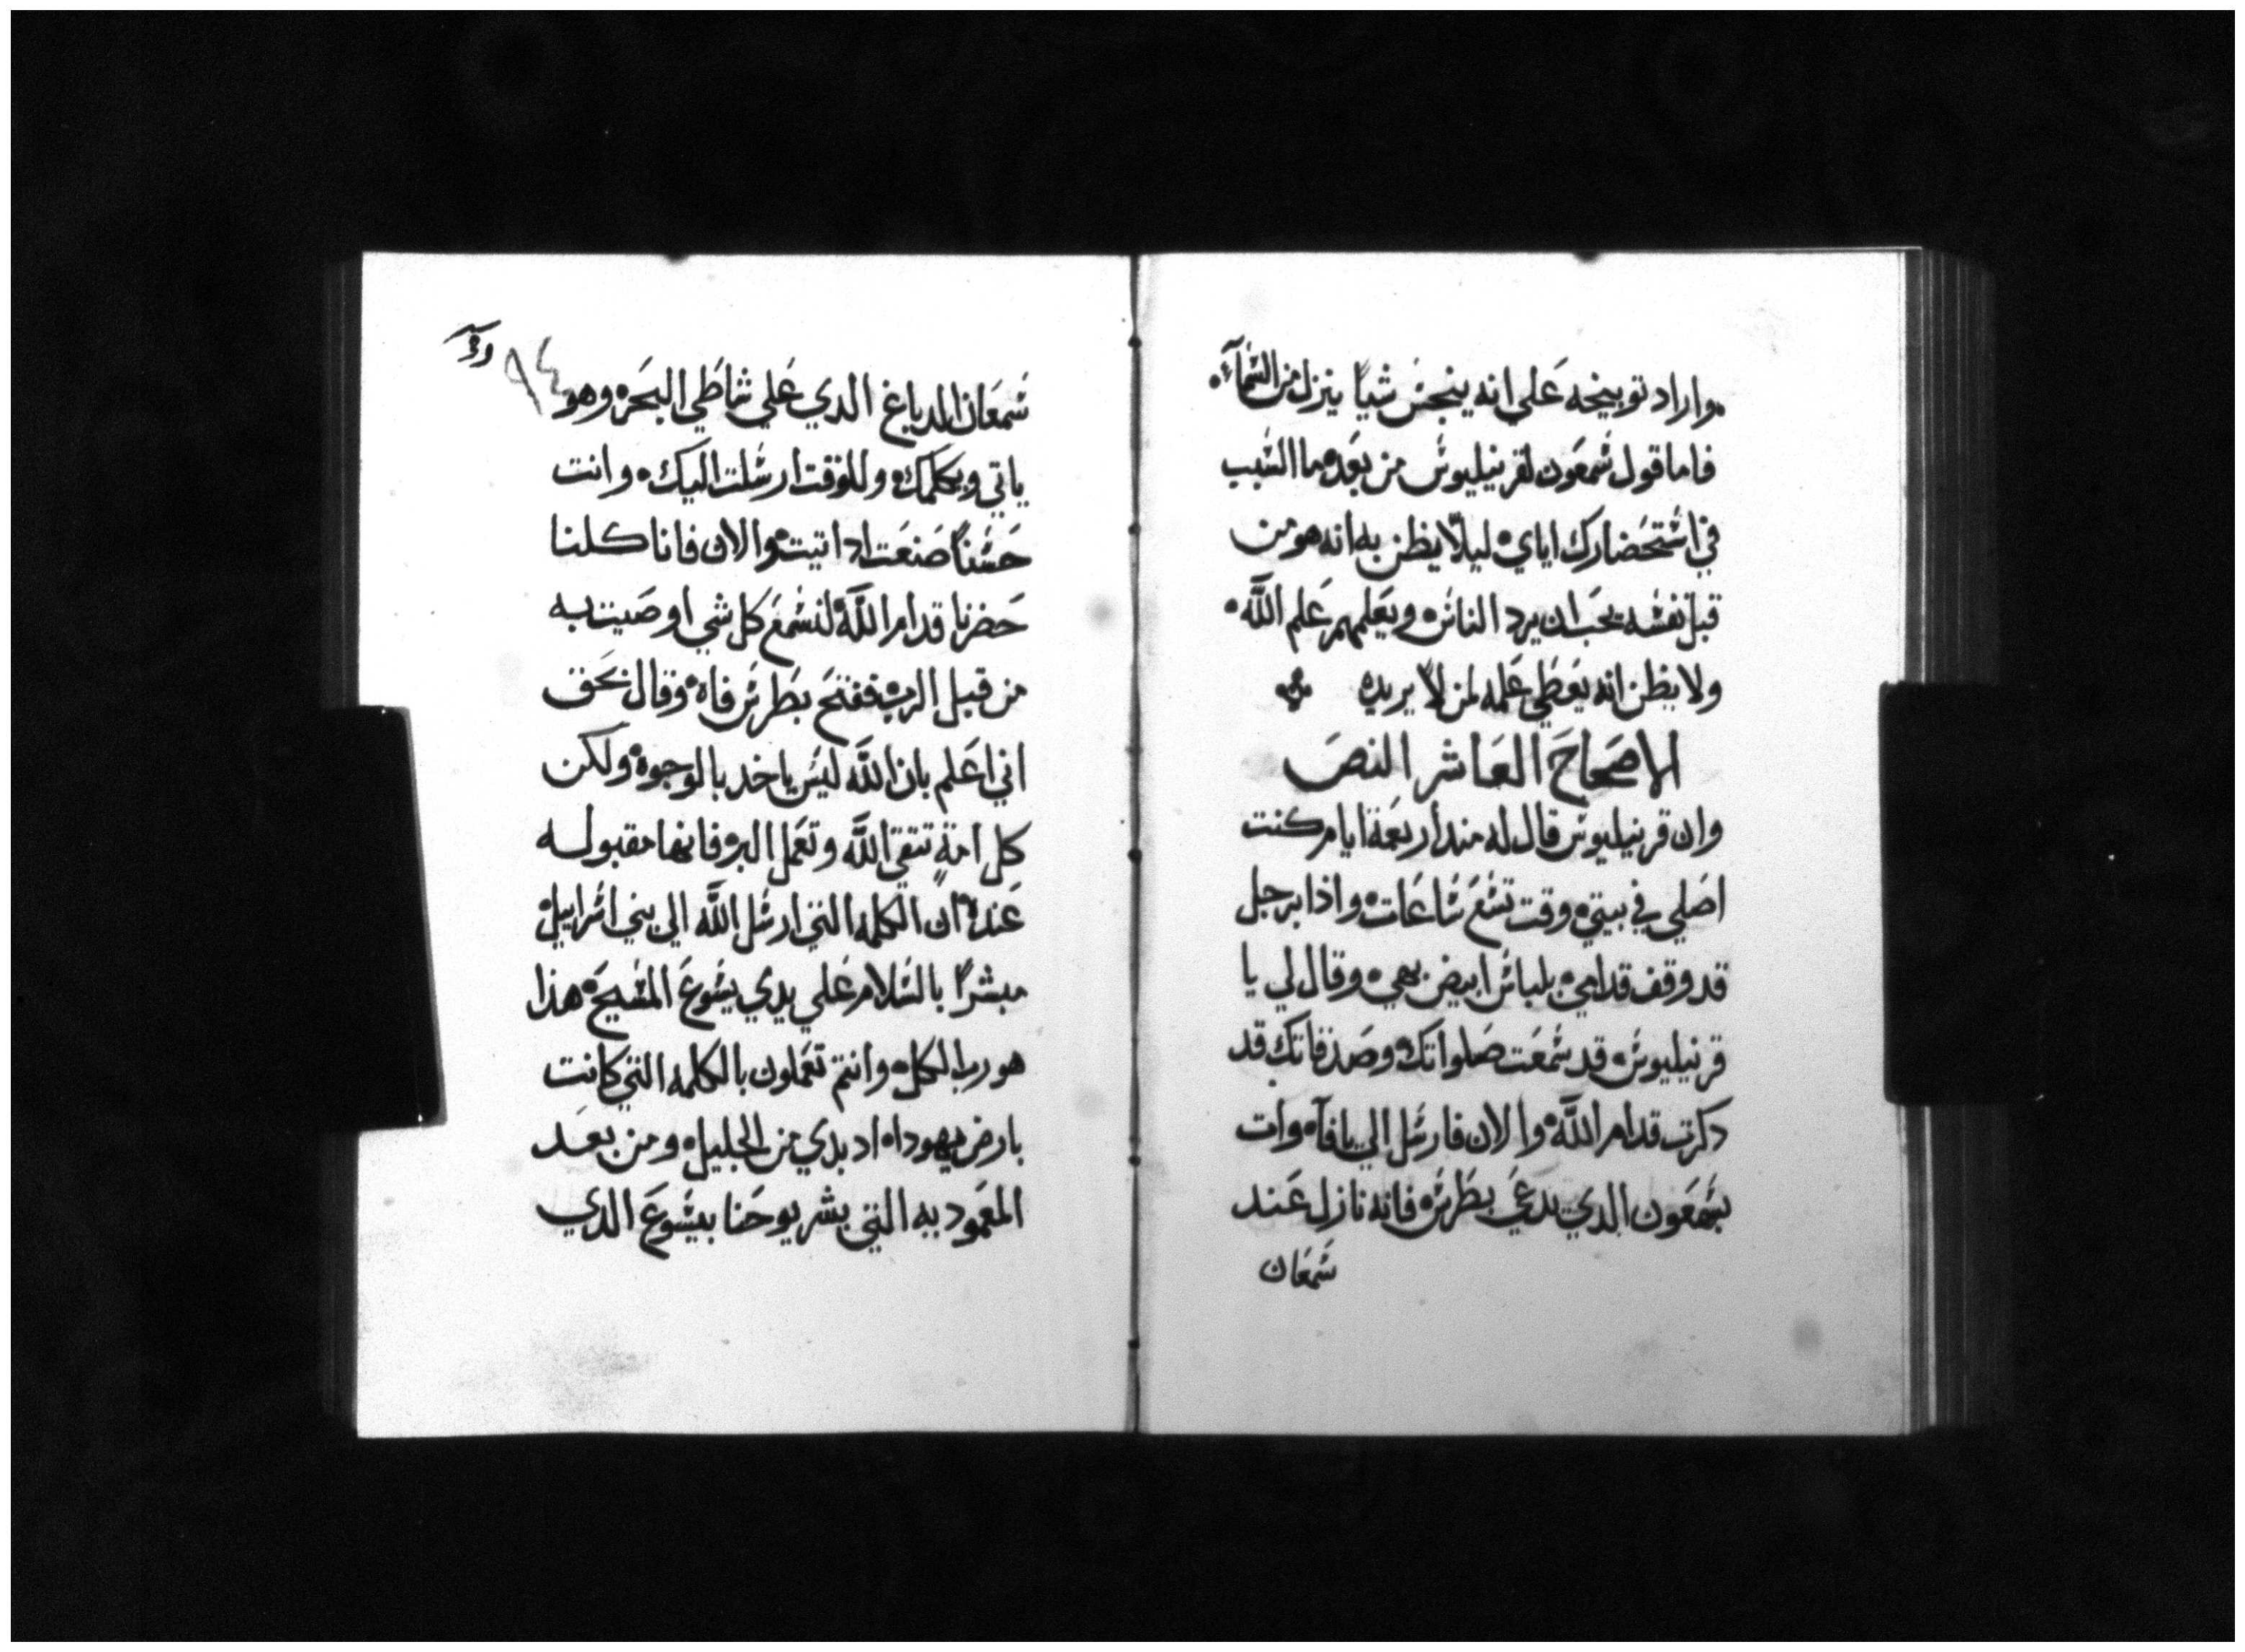 واراد توبيخه علي انه ينجس شياً ينزل من السمآء
فاما قول شمعون لقرنيليوس من بعده ما السبب
في استحضارك اياي ليلّا يظن به انه هو من
قبل نفسه يحب ان يرد الناس ويعلمهم علم اللّه
ولا يظن انه يعطي علمه لمن لا يريده
الاصحاح العاشر النص
وان قرنيليوس قال له مند اربعة ايام كنت
اصلي في بيتي وقت تسع ساعات واذا برجل
قد وقف قدامي بلباس ابيض بهي وقال لي يا
قرنيليوس قد سمعت صلواتك وصدقاتك قد
دكرت قدام اللّه والان فارسل الي يافآ وات
بشمعون الدي يدعي بطرس فانه نازل عند
شمعان
٩٤
شمعان الدباغ الدي علي شاطي البحر وهو
ياتي ويكلمك وللوقت ارسلت اليك وانت
حسناً صنعت اد اتيت والان فانا كلنا
حضرنا قدام اللّه لنسمع كل شي اوصيت به
من قبل الرب ففتح بطرس فاه وقال بحق
اني اعلم بان اللّه ليس ياخد بالوجوه ولكن
كل امةٍ تتقي اللّه وتعمل البر فانها مقبوله
عنده ان الكلمه التي ارسل اللّه الي بني اسراييل
مبشراً بالسلام علي يدي يسوع المسيح هدا
هو رب الكل وانتم تعملون بالكلمه التي كانت
بارض يهودا اد بدي من الجليل ومن بعد
المعموديه التي بشر يوحنا بيسوع الدي